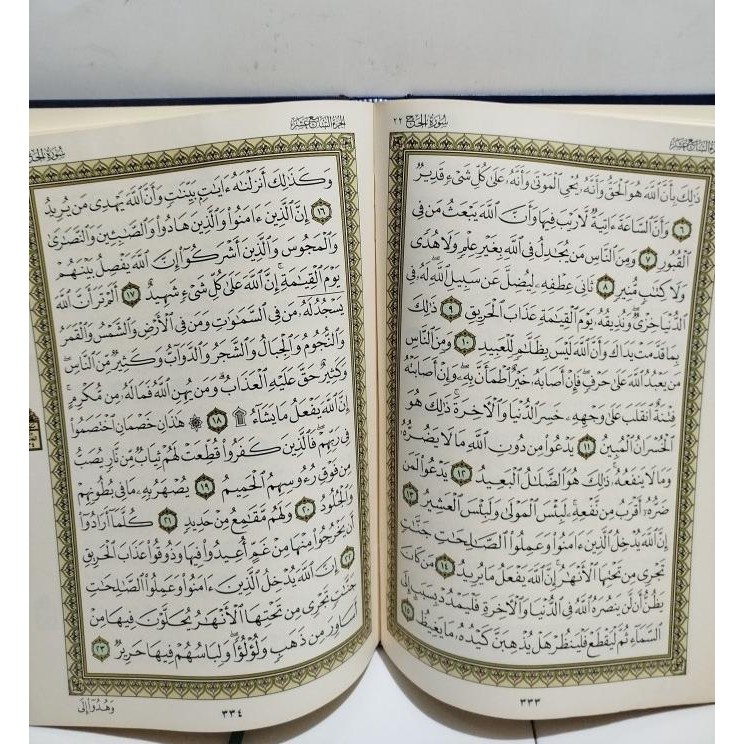 سورة الحج ٢٢
الجزء السابع عشر
ذَٰلِكَ بِأَنَّ ٱللَّهَ هُوَ ٱلْحَقُّ وَأَنَّهُۥ يُحْىِ ٱلْمَوْتَىٰ وَأَنَّهُۥ عَلَىٰ كُلِّ شَىْءٍ قَدِيرٌ
٦ وَأَنَّ ٱلسَّاعَةَ ءَاتِيَةٌ لَّا رَيْبَ فِيهَا وَأَنَّ ٱللَّهَ يَبْعَثُ مَن فِى
ٱلْقُبُورِ ٧ وَمِنَ ٱلنَّاسِ مَن يُجَٰدِلُ فِى ٱللَّهِ بِغَيْرِ عِلْمٍ وَلَا هُدًى
وَلَا كِتَٰبٍ مُّنِيرٍ ٨ ثَانِىَ عِطْفِهِۦ لِيُضِلَّ عَن سَبِيلِ ٱللَّهِ لَهُۥ فِى
ٱلدُّنْيَا خِزْىٌ وَنُذِيقُهُۥ يَوْمَ ٱلْقِيَٰمَةِ عَذَابَ ٱلْحَرِيقِ ٩ ذَٰلِكَ
بِمَا قَدَّمَتْ يَدَاكَ وَأَنَّ ٱللَّهَ لَيْسَ بِظَلَّٰمٍ لِّلْعَبِيدِ ١٠ وَمِنَ ٱلنَّاسِ
مَن يَعْبُدُ ٱللَّهَ عَلَىٰ حَرْفٍ فَإِنْ أَصَابَهُۥ خَيْرٌ ٱطْمَأَنَّ بِهِۦ وَإِنْ أَصَابَتْهُ
فِتْنَةٌ ٱنقَلَبَ عَلَىٰ وَجْهِهِۦ خَسِرَ ٱلدُّنْيَا وَٱلْءَاخِرَةَ ذَٰلِكَ هُوَ
ٱلْخُسْرَانُ ٱلْمُبِينُ ١١ يَدْعُوا۟ مِن دُونِ ٱللَّهِ مَا لَا يَضُرُّهُۥ
وَمَا لَا يَنفَعُهُۥ ذَٰلِكَ هُوَ ٱلضَّلَٰلُ ٱلْبَعِيدُ ١٢ يَدْعُوا۟ لَمَن
ضَرُّهُۥٓ أَقْرَبُ مِن نَّفْعِهِۦ لَبِئْسَ ٱلْمَوْلَىٰ وَلَبِئْسَ ٱلْعَشِيرُ ١٣
إِنَّ ٱللَّهَ يُدْخِلُ ٱلَّذِينَ ءَامَنُوا۟ وَعَمِلُوا۟ ٱلصَّٰلِحَٰتِ جَنَّٰتٍ
تَجْرِى مِن تَحْتِهَا ٱلْأَنْهَٰرُ إِنَّ ٱللَّهَ يَفْعَلُ مَا يُرِيدُ ١٤ مَن كَانَ
يَظُنُّ أَن لَّن يَنصُرَهُ ٱللَّهُ فِى ٱلدُّنْيَا وَٱلْءَاخِرَةِ فَلْيَمْدُدْ بِسَبَبٍ إِلَى
ٱلسَّمَآءِ ثُمَّ لْيَقْطَعْ فَلْيَنظُرْ هَلْ يُذْهِبَنَّ كَيْدُهُۥ مَا يَغِيظُ ١٥
٣٣٣
الجزء السابع عشر
سورة الحج
وَكَذَٰلِكَ أَنزَلْنَٰهُ ءَايَٰتٍۭ بَيِّنَٰتٍ وَأَنَّ ٱللَّهَ يَهْدِى مَن يُرِيدُ
١٦ إِنَّ ٱلَّذِينَ ءَامَنُوا۟ وَٱلَّذِينَ هَادُوا۟ وَٱلصَّٰبِـِٔينَ وَٱلنَّصَٰرَىٰ
وَٱلْمَجُوسَ وَٱلَّذِينَ أَشْرَكُوٓا۟ إِنَّ ٱللَّهَ يَفْصِلُ بَيْنَهُمْ
يَوْمَ ٱلْقِيَٰمَةِ إِنَّ ٱللَّهَ عَلَىٰ كُلِّ شَىْءٍ شَهِيدٌ ١٧ أَلَمْ تَرَ أَنَّ ٱللَّهَ
يَسْجُدُ لَهُۥ مَن فِى ٱلسَّمَٰوَٰتِ وَمَن فِى ٱلْأَرْضِ وَٱلشَّمْسُ وَٱلْقَمَرُ
وَٱلنُّجُومُ وَٱلْجِبَالُ وَٱلشَّجَرُ وَٱلدَّوَآبُّ وَكَثِيرٌ مِّنَ ٱلنَّاسِ
وَكَثِيرٌ حَقَّ عَلَيْهِ ٱلْعَذَابُ وَمَن يُهِنِ ٱللَّهُ فَمَا لَهُۥ مِن مُّكْرِمٍ
إِنَّ ٱللَّهَ يَفْعَلُ مَا يَشَآءُ ۩ ١٨ ۞ هَٰذَانِ خَصْمَانِ ٱخْتَصَمُوا۟
فِى رَبِّهِمْ فَٱلَّذِينَ كَفَرُوا۟ قُطِّعَتْ لَهُمْ ثِيَابٌ مِّن نَّارٍ يُصَبُّ
مِن فَوْقِ رُءُوسِهِمُ ٱلْحَمِيمُ ١٩ يُصْهَرُ بِهِۦ مَا فِى بُطُونِهِمْ
وَٱلْجُلُودُ ٢٠ وَلَهُم مَّقَٰمِعُ مِنْ حَدِيدٍ ٢١ كُلَّمَآ أَرَادُوٓا۟
أَن يَخْرُجُوا۟ مِنْهَا مِنْ غَمٍّ أُعِيدُوا۟ فِيهَا وَذُوقُوا۟ عَذَابَ ٱلْحَرِيقِ
٢٢ إِنَّ ٱللَّهَ يُدْخِلُ ٱلَّذِينَ ءَامَنُوا۟ وَعَمِلُوا۟ ٱلصَّٰلِحَٰتِ
جَنَّٰتٍ تَجْرِى مِن تَحْتِهَا ٱلْأَنْهَٰرُ يُحَلَّوْنَ فِيهَا مِنْ
أَسَاوِرَ مِن ذَهَبٍ وَلُؤْلُؤًا وَلِبَاسُهُمْ فِيهَا حَرِيرٌ ٢٣
وَهُدُوٓا۟ إِلَى
٣٣٤